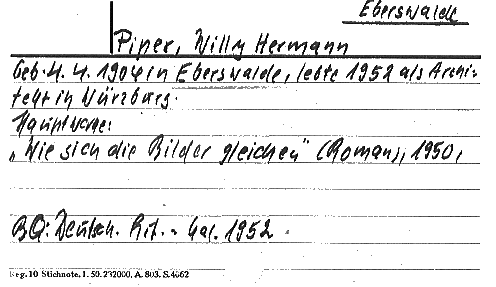 Eberswalde
Piper, Willy Hermann
Geb. 4. 4. 1904 in Eberswalde, lebte 1952 als Archi-
tekt in Würzburg.
Hauptwerke:
„Wie sich die Bilder gleichen" (Roman), 1950,
BQ: Deutsch. Lit. - Kal. 1952.
Reg. 10 Stichnote. I. 50. 232000. A. 803. S. 4062